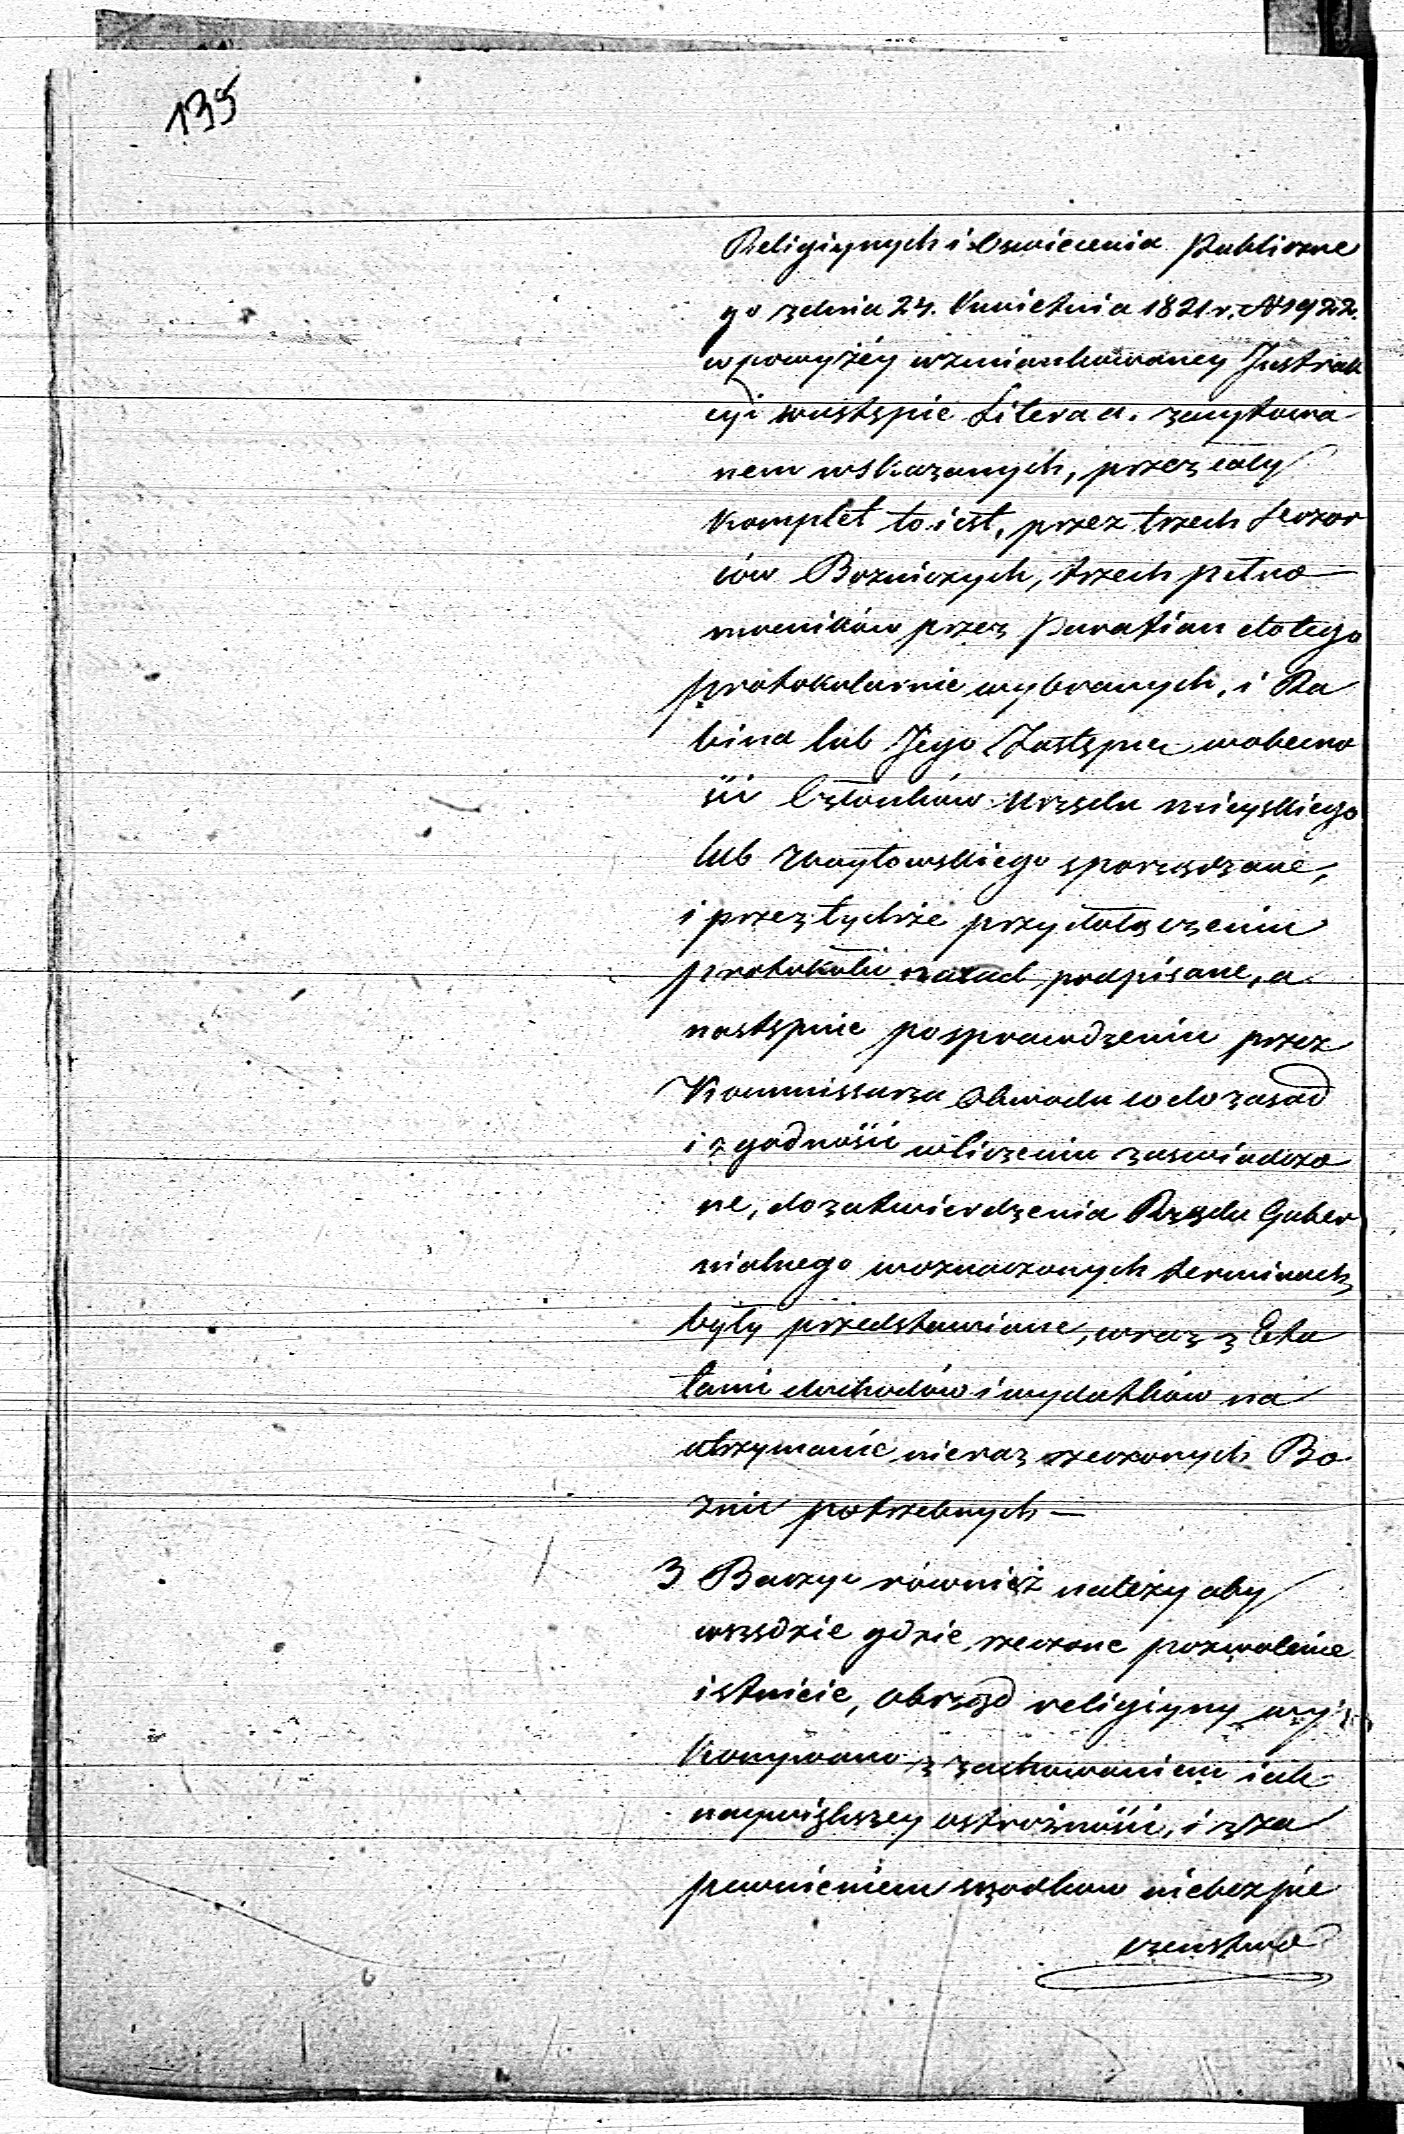 135
Religiynych i Oswiecenia Publiczne
go z dnia 24. Kwietnia 1821 r. N 1922.
w powyżéy wzmiankowaney Instruk
cyi w ustępie Litera a. zacytowa-
nem wskazanych, przez cały
komplet to iest, przez trzech Dozor
ców Bozniczych, trzech pełno-
mocników przez Parafian do tego
protokularnie wybranych, i Ra
bina lub Jego Zastępcu w obecno
ści Członków Urzędu mieyskiego
lub woytowskiego sporządzane,
i przez tychże przy dołączeniu
protokułu narad podpisane, a
nastepnie po sprawdzeniu przez
Kommissarza Obwodu co do zasad
i zgodności w liczeniu zaswiadczo
ne, do zatwierdzenia Rządu Guber
nialnego w oznaczonych terminach
były przedstawiane, wraz z Eta
tami dochodów i wydatków na
utrzymanie nieraz rzeczonych Bo
znic potrzebnych —
3 Baczyc również należy aby
wszędzie gdzie rzeczone pozwolenie
istnieie, obrząd religiyny wy
konywano z zachowaniem iak
naywiększey ostrożności, i z za
pewnieniem srzodkow niebezpie
czenstwa